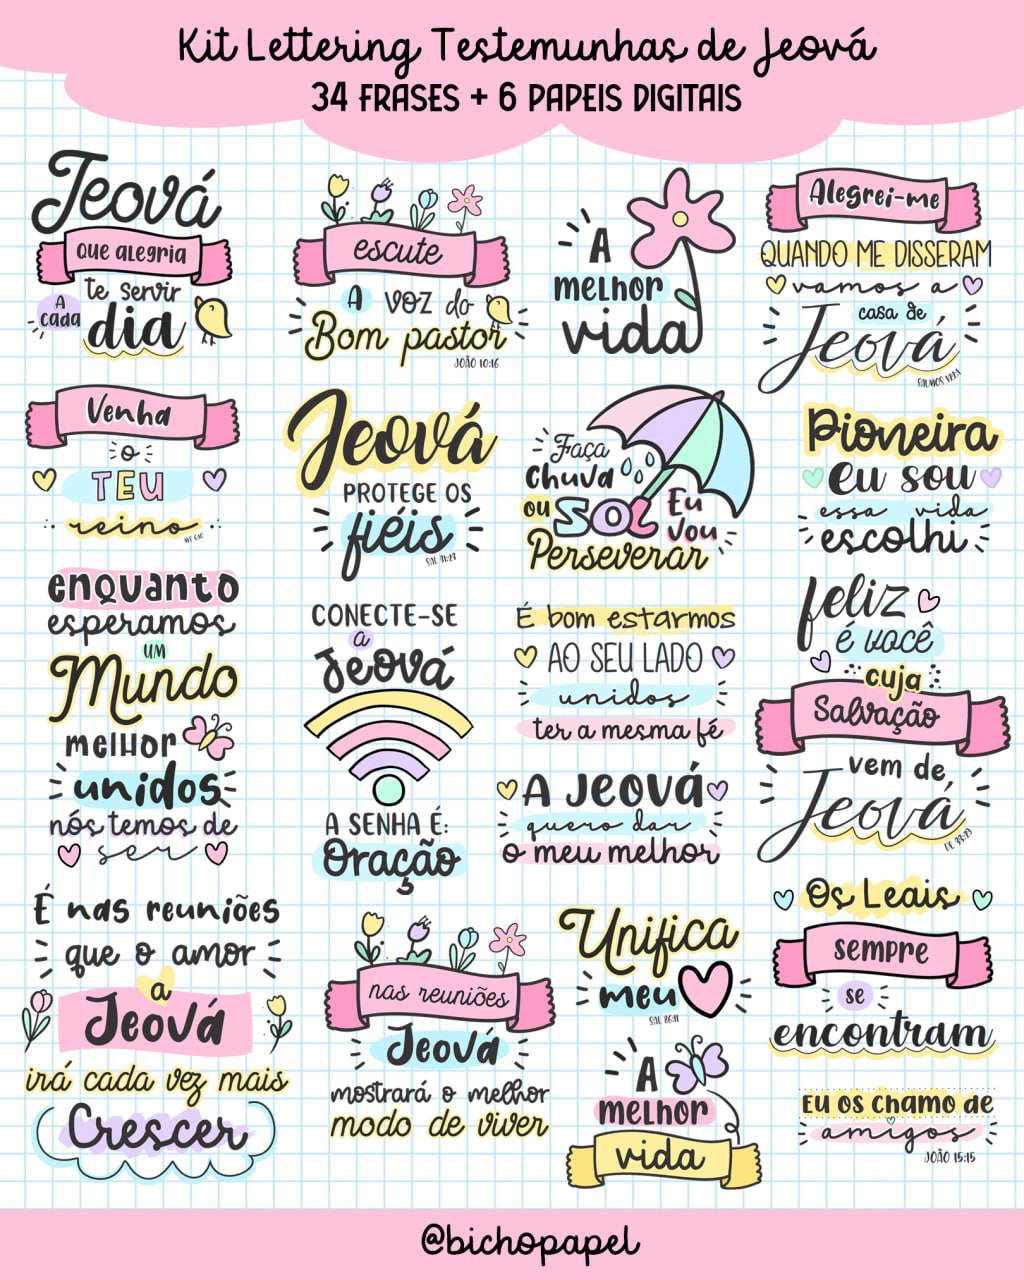 Kit Lettering Testemunhas de Jeová
34 FRASES + 6 PAPEIS DIGITAIS
Jeová
QUE ALEGRIA
te servir
A
cada
dia
escute
A voz do
Bom pastor
JOÃO 10:16
A
melhor
vida
Alegrei-me
QUANDO ME DISSERAM
vamos a
casa de
Jeová
SALMOS 122:1
Venha
o
TEU
reino
MT 6:10
Jeová
PROTEGE OS
fiéis
SAL 31:23
Faça
Chuva
ou
SOL
Eu
Vou
Perseverar
Pioneira
eu sou
essa vida
escolhi
enquanto
esperamos
UM
Mundo
melhor
unidos
nós temos de
ser
CONECTE-SE
a
Jeová
A SENHA É:
Oração
É bom estarmos
AO SEU LADO
unidos
ter a mesma fé
A Jeová
quero dar
o meu melhor
feliz
é você
cuja
Salvação
vem de
Jeová
DE 33:29
É nas reuniões
que o amor
a
Jeová
irá cada vez mais
Crescer
nas reuniões
Jeová
mostrará o melhor
modo de viver
Unifica
meu
SAL 86:11
A
melhor
vida
Os Leais
sempre
se
encontram
Eu os chamo de
amigos
JOÃO 15:15
@bichopapel